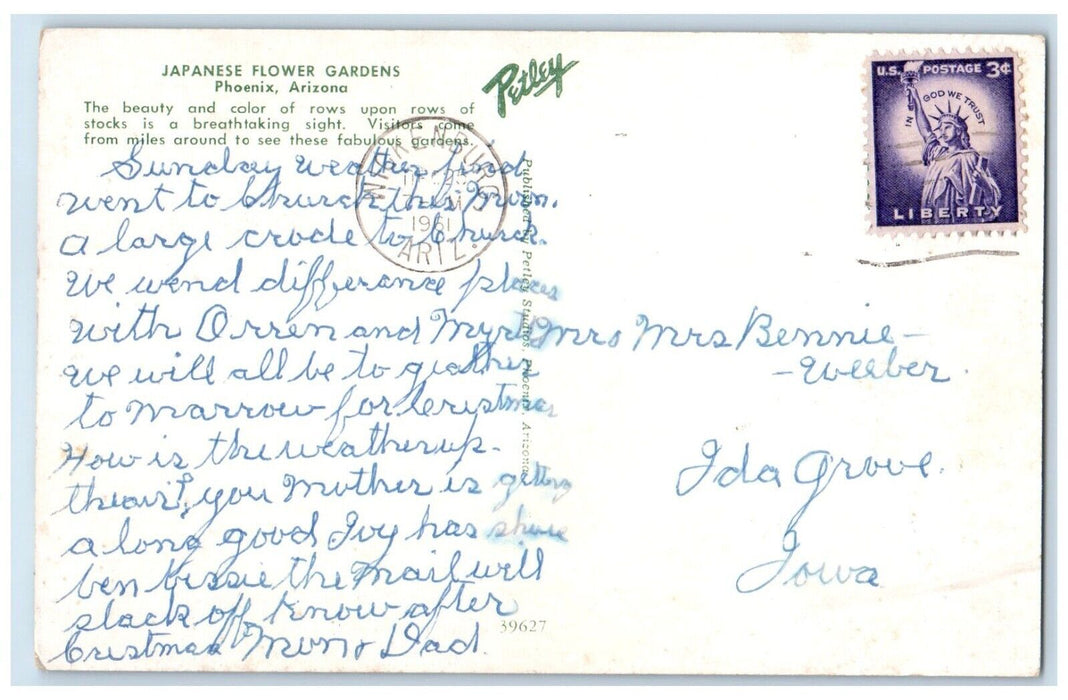 JAPANESE FLOWER GARDENS
Phoenix, Arizona
The beauty and color of rows upon rows of
stocks is a breathtaking sight. Visitors come
from miles around to see these fabulous gardens.
Petley
U.S. POSTAGE 3¢
IN GOD WE TRUST
LIBERTY
WICKENBURG
1961
ARIZ.
Sunday weather kind
went to Church this Morn.
A large crode to Church.
We wend differance places
with Orren and Myrt
We will all be to geather
to morrow for Cristmas
How is the weather up.
theair, you Mother is getting
a long good Ivy has shure
ben bissie the Mail will
slack off know after
Cristmas Mom & Dad.
Published by Petley Studios, Phoenix, Arizona
39627
Mrs Bennie
Weeber.
Ida Grove.
Iowa